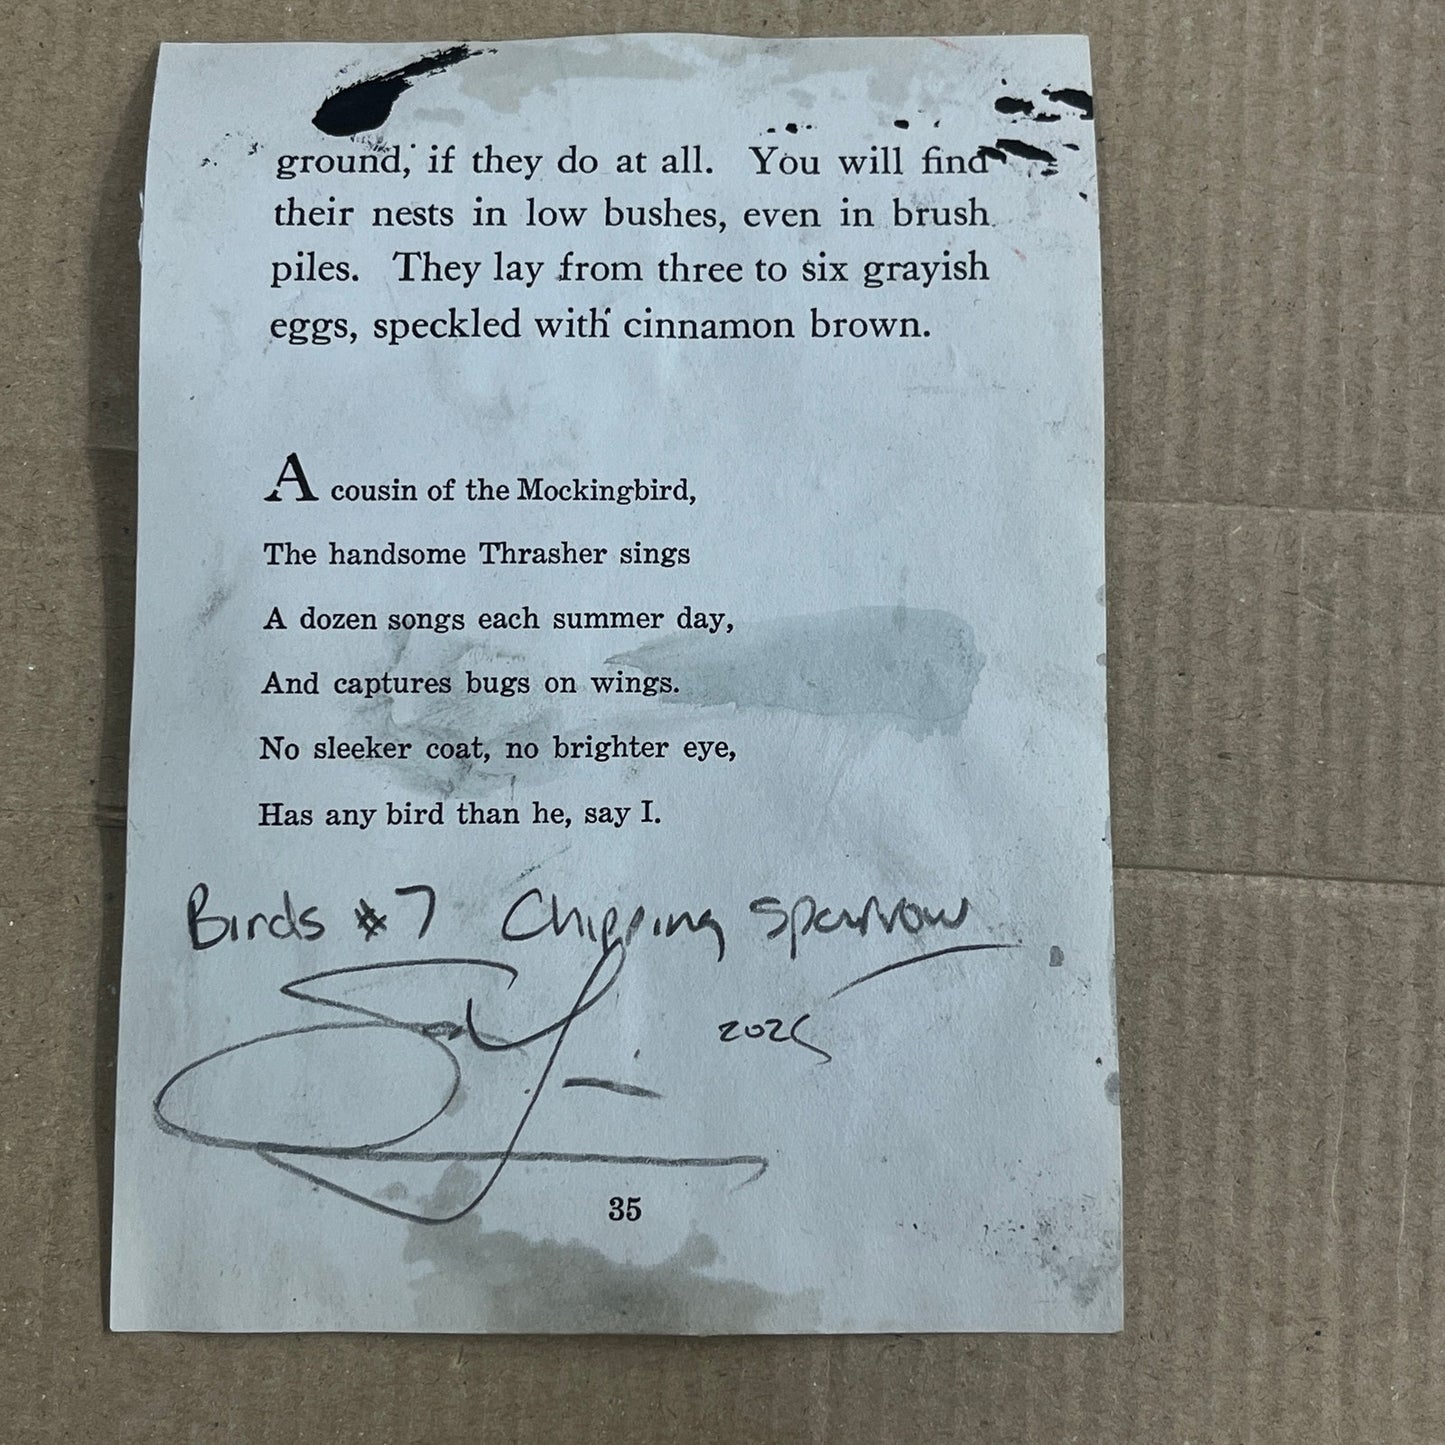 ground, if they do at all. You will find
their nests in low bushes, even in brush
piles. They lay from three to six grayish
eggs, speckled with cinnamon brown.
A cousin of the Mockingbird,
The handsome Thrasher sings
A dozen songs each summer day,
And captures bugs on wings.
No sleeker coat, no brighter eye,
Has any bird than he, say I.
Birds #7 Chipping Sparrow
2025
35